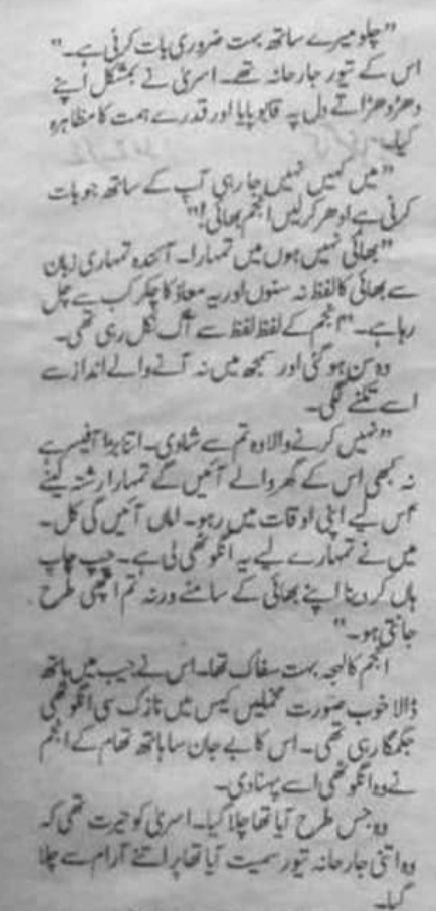 "چلو میرے ساتھ بہت ضروری بات کرنی ہے۔"
اس کے تیور جارحانہ تھے۔ اسریٰ نے بمشکل اپنے
دھڑدھڑاتے دل پہ قابو پایا اور قدرے ہمت کا مظاہرہ
کیا۔
"میں کہیں نہیں جا رہی آپ کے ساتھ جو بات
کرنی ہے ادھر کرلیں انجم بھائی!"
"بھائی نہیں ہوں میں تمہارا۔ آئندہ تمہاری زبان
سے بھائی کا لفظ نہ سنوں اور یہ معاذ کا چکر کب سے چل
رہا ہے۔" انجم کے لفظ لفظ سے آگ نکل رہی تھی۔
وہ سن ہو گئی اور سمجھ میں نہ آنے والے انداز سے
اسے تکنے لگی۔
"نہیں کرنے والا وہ تم سے شادی۔ اتنا بڑا آفیسر ہے
نہ کبھی اس کے گھر والے آئیں گے تمہارا رشتہ لینے
اس لیے اپنی اوقات میں رہو۔ اماں آئیں گی کل۔
میں نے تمہارے لیے یہ انگوٹھی لی ہے۔ چپ چاپ
ہاں کر دینا اپنے بھائی کے سامنے ورنہ تم اچھی طرح
جانتی ہو۔"
انجم کا لہجہ بہت سفاک تھا۔ اس نے جیب میں ہاتھ
ڈالا خوب صورت مخملیں کیس میں نازک سی انگوٹھی
جگمگا رہی تھی۔ اس کا بے جان سا ہاتھ تھام کے انجم
نے وہ انگوٹھی اسے پہنا دی۔
وہ جس طرح آیا تھا چلا گیا۔ اسریٰ کو حیرت تھی کہ
وہ اتنی جارحانہ تیور سمیت آیا تھا پر اتنے آرام سے چلا
گیا۔